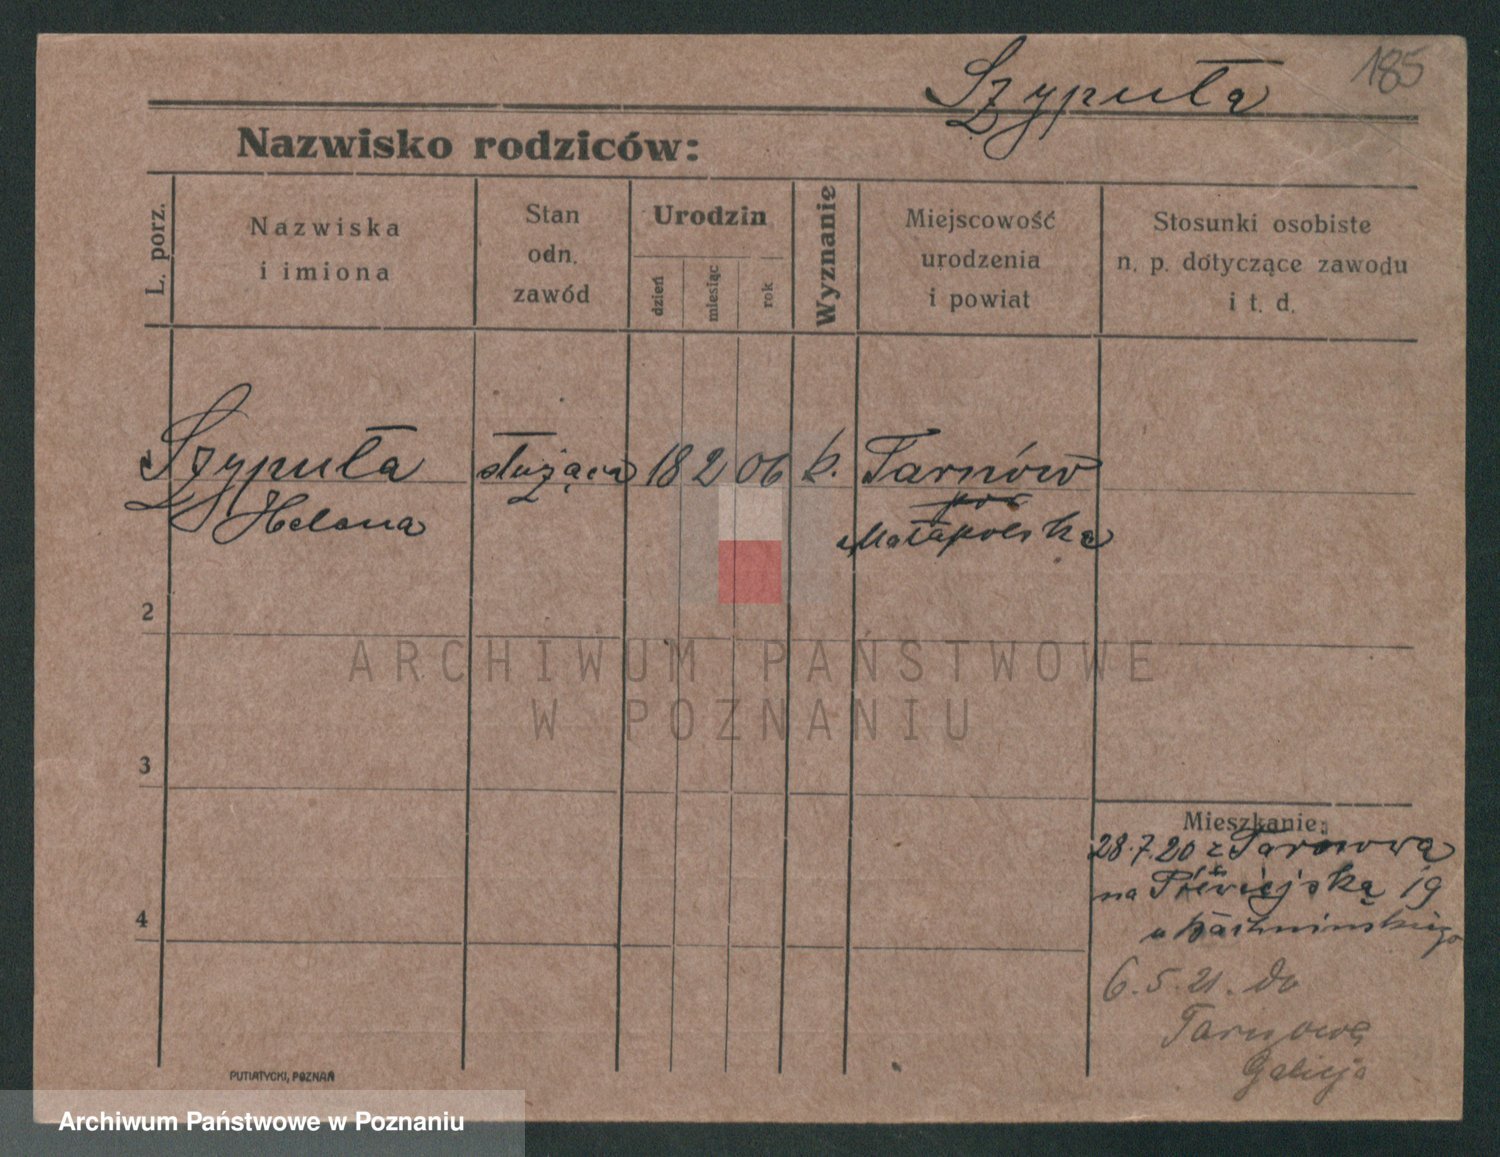 185
Szypuła
Nazwisko rodziców:
L. porz.
Nazwiska
i imiona
Stan
odn.
zawód
Urodzin
dzień
miesiąc
rok
Wyznanie
Miejscowość
urodzenia
i powiat
Stosunki osobiste
n. p. dotyczące zawodu
i t. d.
Szypuła służąca 18 2 06 k. Tarnów
Helena
Małapolska
2
ARCHIWUM PAŃSTWOWE
W POZNANIU
3
4
Mieszkanie:
28.7.20 z Tarnowa
na Półwiejską 19
u
6.5.21. do
Tarnowa
Galicja
PUTIATYCKI, POZNAŃ
Archiwum Państwowe w Poznaniu